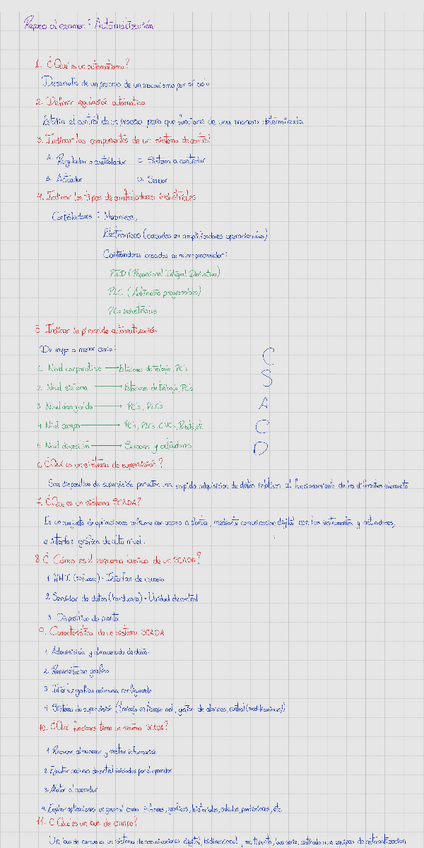 Repaso al examen: Automatización
1. ¿Qué es un automatismo?
Desarrollo de un proceso de un mecanismo por sí solo
2. Definir regulación automática
Estudia el control de un proceso para que funcione de una manera determinada
3. Indicar los componentes de un sistema de control
A. Regulador o controlador C. Sistema a controlar
B. Actuador D. Sensor
4. Indicar los tipos de controladores industriales
Controladores: Neumáticos,
Electrónicos (basados en amplificadores operacionales)
Controladores basados en microprocesador:
PID (Proporcional Integral Derivativo)
PLC (Autómata programable)
PCs industriales
5. Indicar la pirámide automatización
De mayor a menor
1. Nivel corporativo → Estaciones de trabajo, PCs
2. Nivel sistema → Estaciones de trabajo, PCs
3. Nivel → PCs, PLCs
4. Nivel campo → PCs, PLCs, CNCs,
5. Nivel → Sensores y actuadores
C
S
A
C
D
6. ¿Qué es un sistema de supervisión?
Son dispositivos de supervisión permiten una rápida adquisición de datos relativos al funcionamiento de los diferentes elementos
7. ¿Qué es un sistema SCADA?
Es un conjunto de aplicaciones software con acceso a planta, mediante comunicación digital con los instrumentos y actuadores,
e interfaz gráfica de alto nivel.
8. ¿Cómo es el esquema básico de un SCADA?
1. HMI (software) - Interfaz de usuario
2. Servidor de datos (hardware) - Unidad de control
3. Dispositivo de planta
9. Características de un sistema SCADA
1. Adquisición y almacenado de datos
2. Representación gráfica
3.
4. Sistema de supervisión
10. ¿Qué funciones tiene un sistema SCADA?
1. almacenar y mostrar información
2. Ejecutar acciones de control iniciadas por el operador
3. Alertar al operador
4.
11. ¿Qué es un bus de campo?
Un bus de campo es un sistema de comunicaciones digital, bidireccional, multipunto,